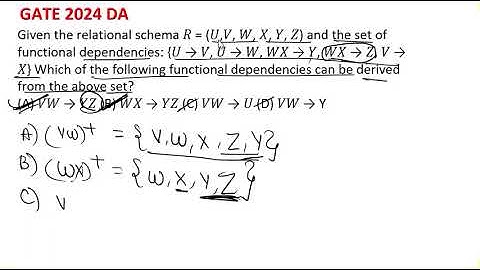 GATE 2024 DA
Given the relational schema R = (U,V, W, X, Y, Z) and the set of
functional dependencies: {U → V, U → W, WX → Y, WX → Z, V →
X} Which of the following functional dependencies can be derived
from the above set?
(A) VW → YZ (B) WX → YZ (C) VW → U (D) VW → Y
A) (VW)+ = {V,W,X,Z,Y}
B) (WX)+ = {W,X,Y,Z}
C) V